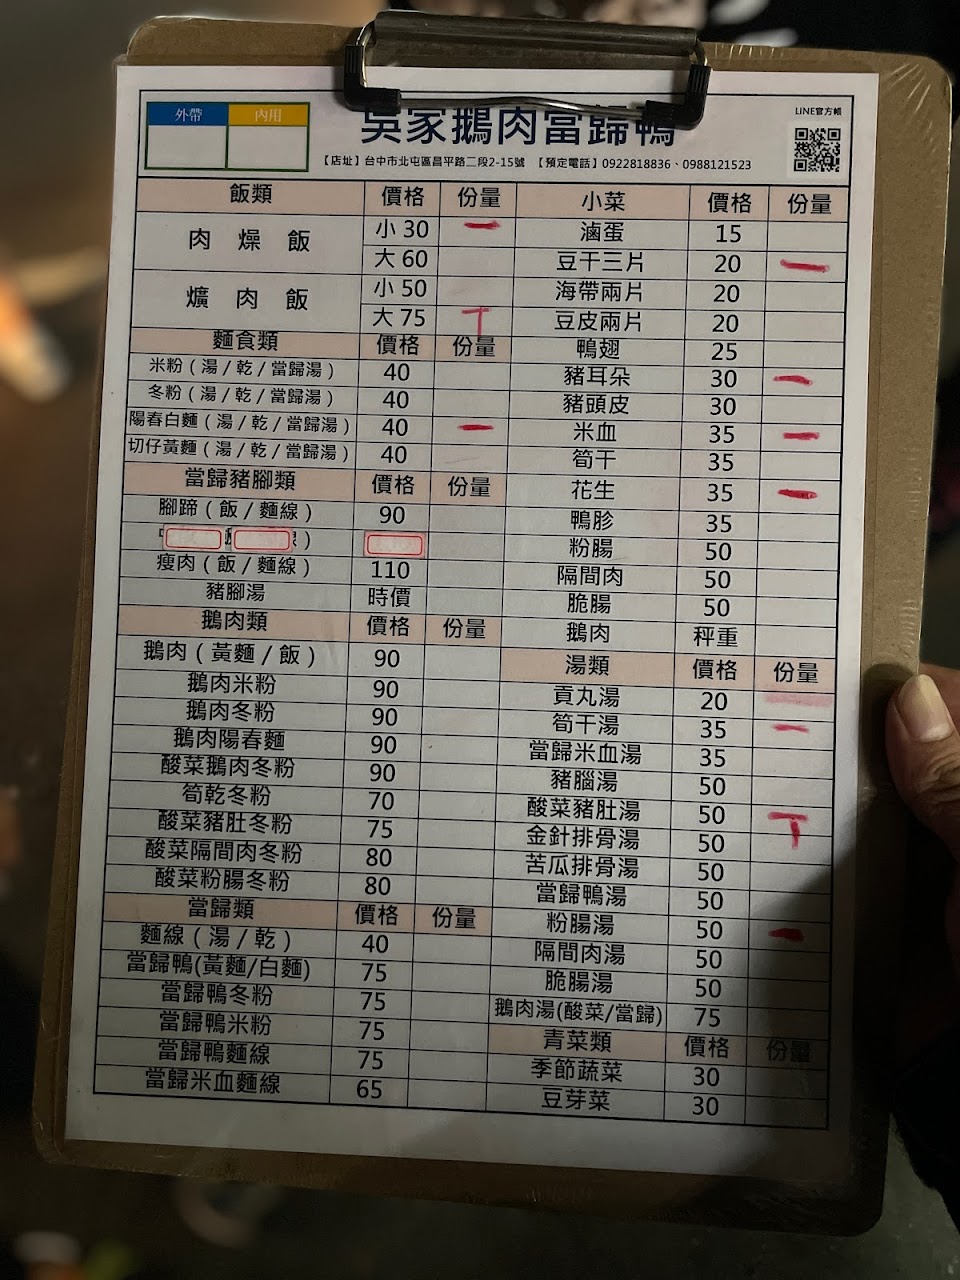 外帶 內用
吳家鵝肉當歸鴨
LINE官方帳
【店址】台中市北屯區昌平路二段2-15號 【預定電話】0922818836、0988121523
飯類 價格 份量
肉燥飯 小 30 一
大 60
爌肉飯 小 50
大 75 T
麵食類 價格 份量
米粉(湯/乾/當歸湯) 40
冬粉(湯/乾/當歸湯) 40
陽春白麵(湯/乾/當歸湯) 40 一
切仔黃麵(湯/乾/當歸湯) 40
當歸豬腳類 價格 份量
腳蹄(飯/麵線) 90
瘦肉(飯/麵線) 110
豬腳湯 時價
鵝肉類 價格 份量
鵝肉(黃麵/飯) 90
鵝肉米粉 90
鵝肉冬粉 90
鵝肉陽春麵 90
酸菜鵝肉冬粉 90
筍乾冬粉 70
酸菜豬肚冬粉 75
酸菜隔間肉冬粉 80
酸菜粉腸冬粉 80
當歸類 價格 份量
麵線(湯/乾) 40
當歸鴨(黃麵/白麵) 75
當歸鴨冬粉 75
當歸鴨米粉 75
當歸鴨麵線 75
當歸米血麵線 65
小菜 價格 份量
滷蛋 15
豆干三片 20 一
海帶兩片 20
豆皮兩片 20
鴨翅 25
豬耳朵 30 一
豬頭皮 30
米血 35 一
筍干 35
花生 35 一
鴨胗 35
粉腸 50
隔間肉 50
脆腸 50
鵝肉 秤重
湯類 價格 份量
貢丸湯 20
筍干湯 35 一
當歸米血湯 35
豬腦湯 50
酸菜豬肚湯 50 T
金針排骨湯 50
苦瓜排骨湯 50
當歸鴨湯 50
粉腸湯 50 一
隔間肉湯 50
脆腸湯 50
鵝肉湯(酸菜/當歸) 75
青菜類 價格 份量
季節蔬菜 30
豆芽菜 30